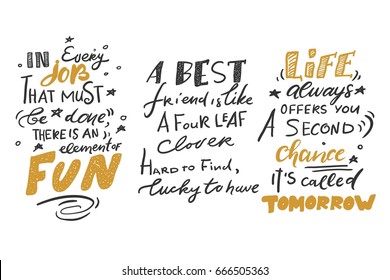 IN Every
JOB
THAT MUST
be done,
THERE IS AN
element of
FUN
A BEST
friend is like
A FOUR LEAF
clover
HARD to FIND,
lucky to have
LIFE
always
OFFERS YOU
A SECOND
chance
it's called
TOMORROW
shutterstock.com · 666505363